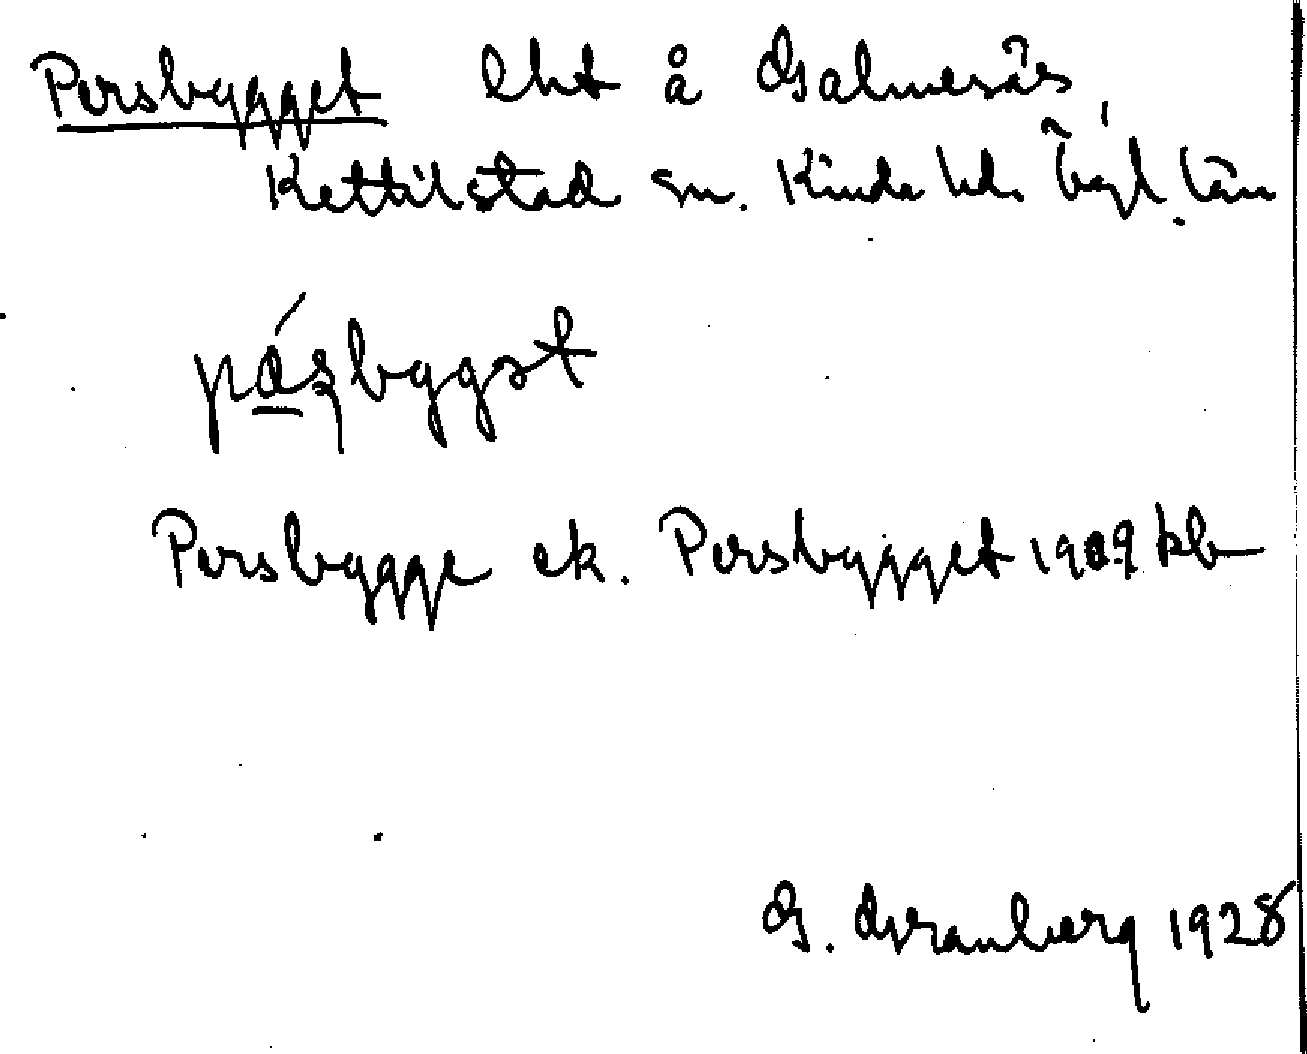 Persbygget lht å Galmesås,
Kettilstad sn. Kinda hd. Ögl. län
pá̱ʂbyggət
Persbygge ek. Persbygget 1909 kb
G. Granberg 1928